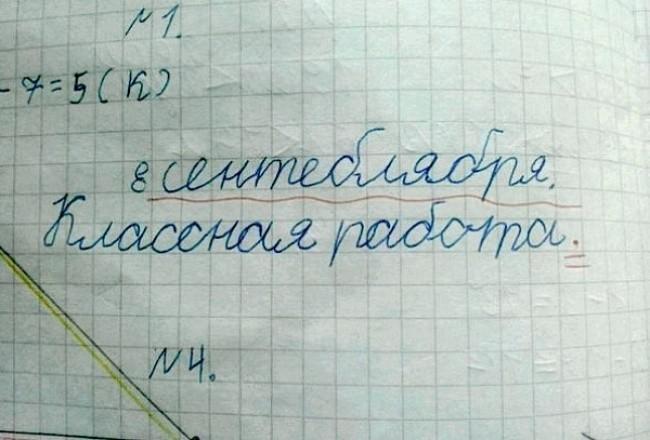 N 1.
- 7 = 5 ( К )
8 сентеблября.
Классная работа.
N 4.